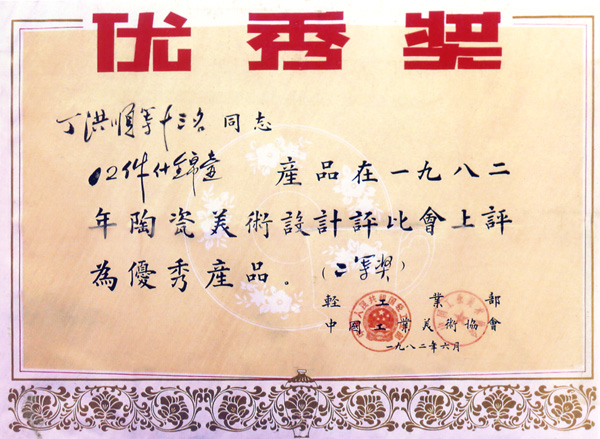 优秀奖
丁洪顺等十三名 同志
12件什锦壶 産品在一九八二
年陶瓷美術設計評比會上評
為優秀産品。(二等奖)
輕工業部
中國工業美術協會
一九八二年六月